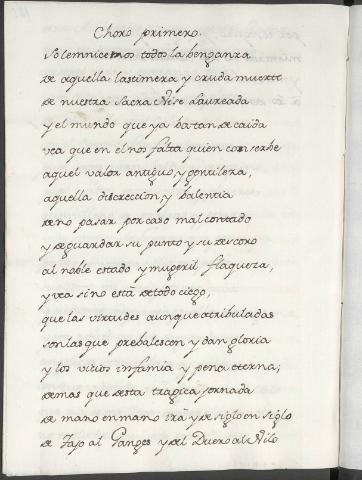 Choro primero.
Solemnicemos todos la benganza
de aquella lastimera y cruda muerte
de nuestra Sacra Nise Laureada
y el mundo que ya ba tan de caida
vea que en el nos falta quien conserbe
aquel valor antiguo y gentileza,
aquella discreccion, y balentia
de no pasar por caso mal contado
y de guardar su punto y su decoro
al noble estado y mugeril flaqueza,
y vea si no está de todo ciego,
que las virtudes aunque atribuladas
son las que prebalescen y dan gloria
y los vicios infamia y pena eterna;
demas que desta tragica jornada
de mano en mano irá y de siglo en siglo
de Tajo al Ganges y del Duero al Nilo